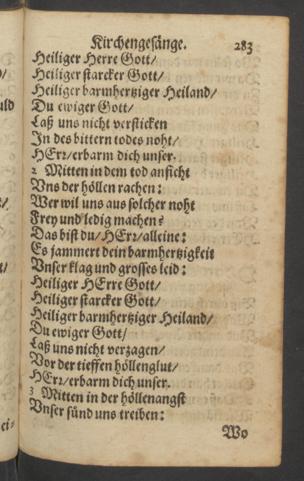 Kirchengesänge. 283
Heiliger Herre Gott/
Heiliger starcker Gott/
Heiliger barmhertziger Heiland/
Du ewiger Gott/
Laß uns nicht versticken
In des bittern todes noht/
HErr/erbarm dich unser.
2 Mitten in dem tod anficht
Vns der höllen rachen:
Wer wil uns aus solcher noht
Frey und ledig machen?
Das bist du/ HErr/alleine:
Es jammert dein barmhertzigkeit
Vnser klag und grosses leid:
Heiliger HErre Gott/
Heiliger starcker Gott/
Heiliger barmhertziger Heiland/
Du ewiger Gott/
Laß uns nicht verzagen/
Vor der tieffen höllenglut/
HErr/erbarm dich unser.
3 Mitten in der höllenangst
Vnser sünd uns treiben:
Wo